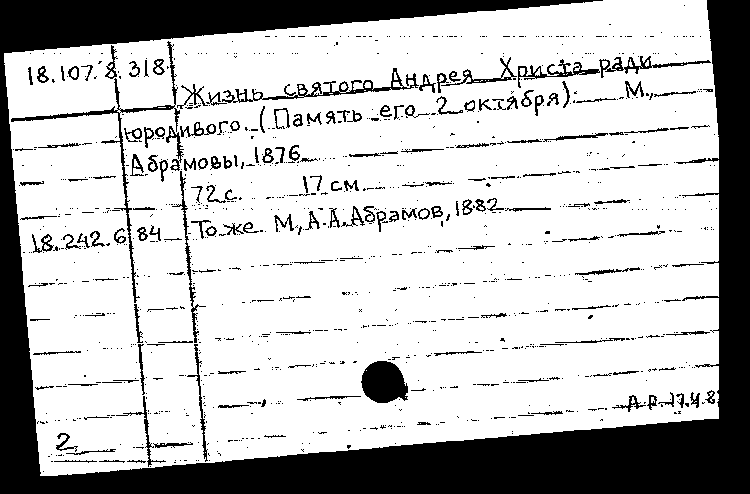 18.107.8.318
Жизнь святого Андрея Христа ради
юродивого. (Память его 2 октября). М.,
Абрамовы, 1876.
72 с. 17 см.
18.242.6.84 То же М., А.А. Абрамов, 1882
2